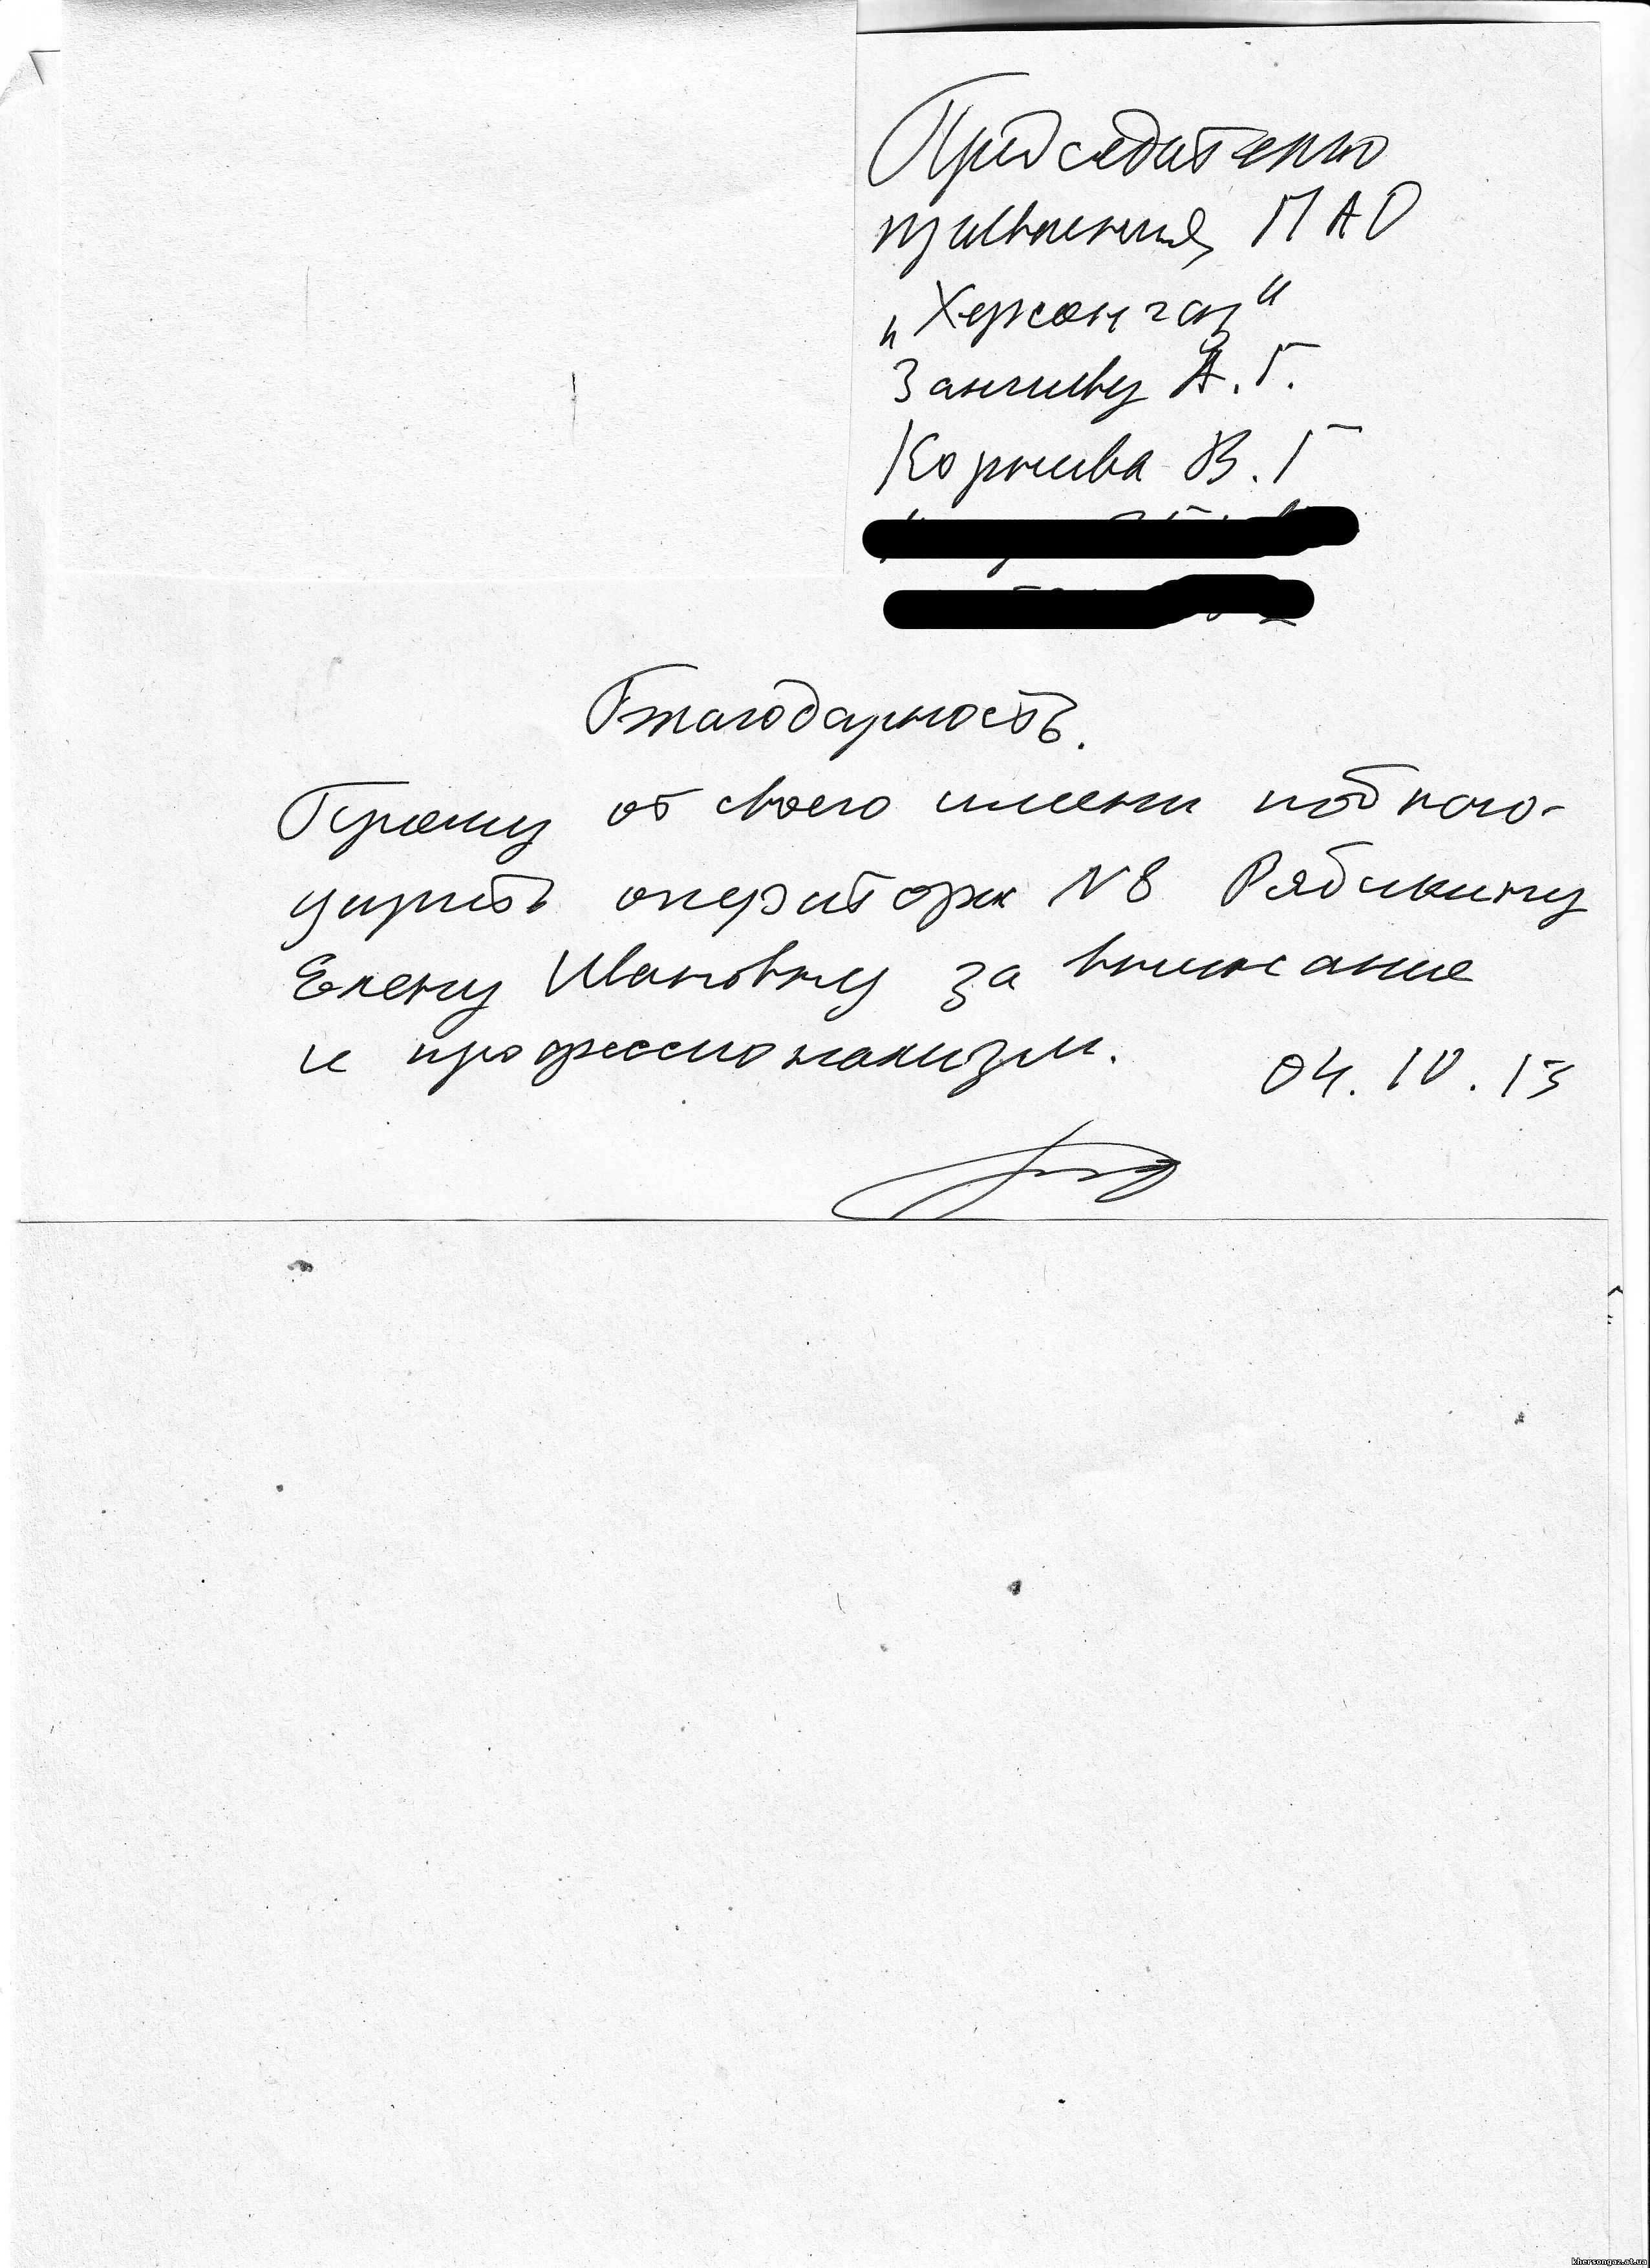 Председателю
правления ПАО
„Херсонгаз"
Зангиеву А.Г.
Корнева В.Г
Благодарность.
Прошу от своего имени поблаго-
дарить оператора N8 Рябишину
Елену Ивановну за внимание
и профессионализм.
04.10.13
khersongaz.at.ua